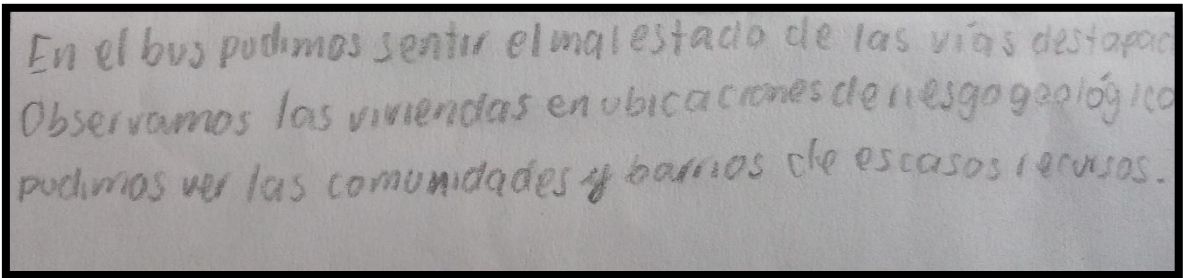 En el bus pudimos sentir el mal estado de las vías destapad
Observamos las viviendas en ubicaciones de riesgo geológico
pudimos ver las comunidades y barrios de escasos recursos.